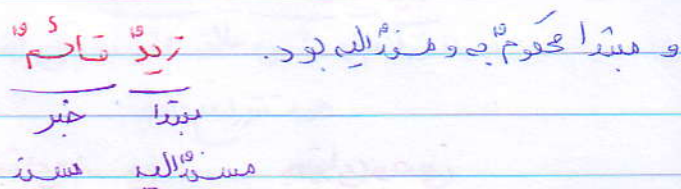 و مبتدا محکومٌ به و مسندٌ الیه بود. زیدٌ قائمٌ
مبتدا خبر
مسندٌ الیه مسند